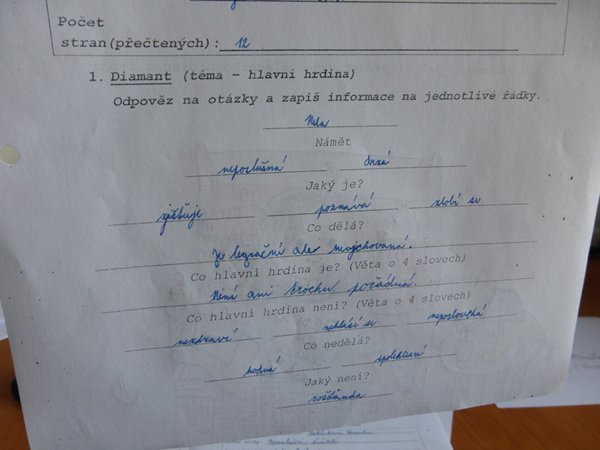 Počet
stran(přečtených): 12
1. Diamant (téma – hlavní hrdina)
Odpověz na otázky a zapiš informace na jednotlivé řádky.
Nela
Námět
neposlušná drzá
Jaký je?
zjišťuje poznává zlobí se
Co dělá?
Je legrační ale nevychovaná.
Co hlavní hrdina je? (Věta o 4 slovech)
Není ani trochu pořádná.
Co hlavní hrdina není? (Věta o 4 slovech)
nezdraví nehlásí se neposlouchá
Co nedělá?
hodná spolehlivá
Jaký není?
rošťanda